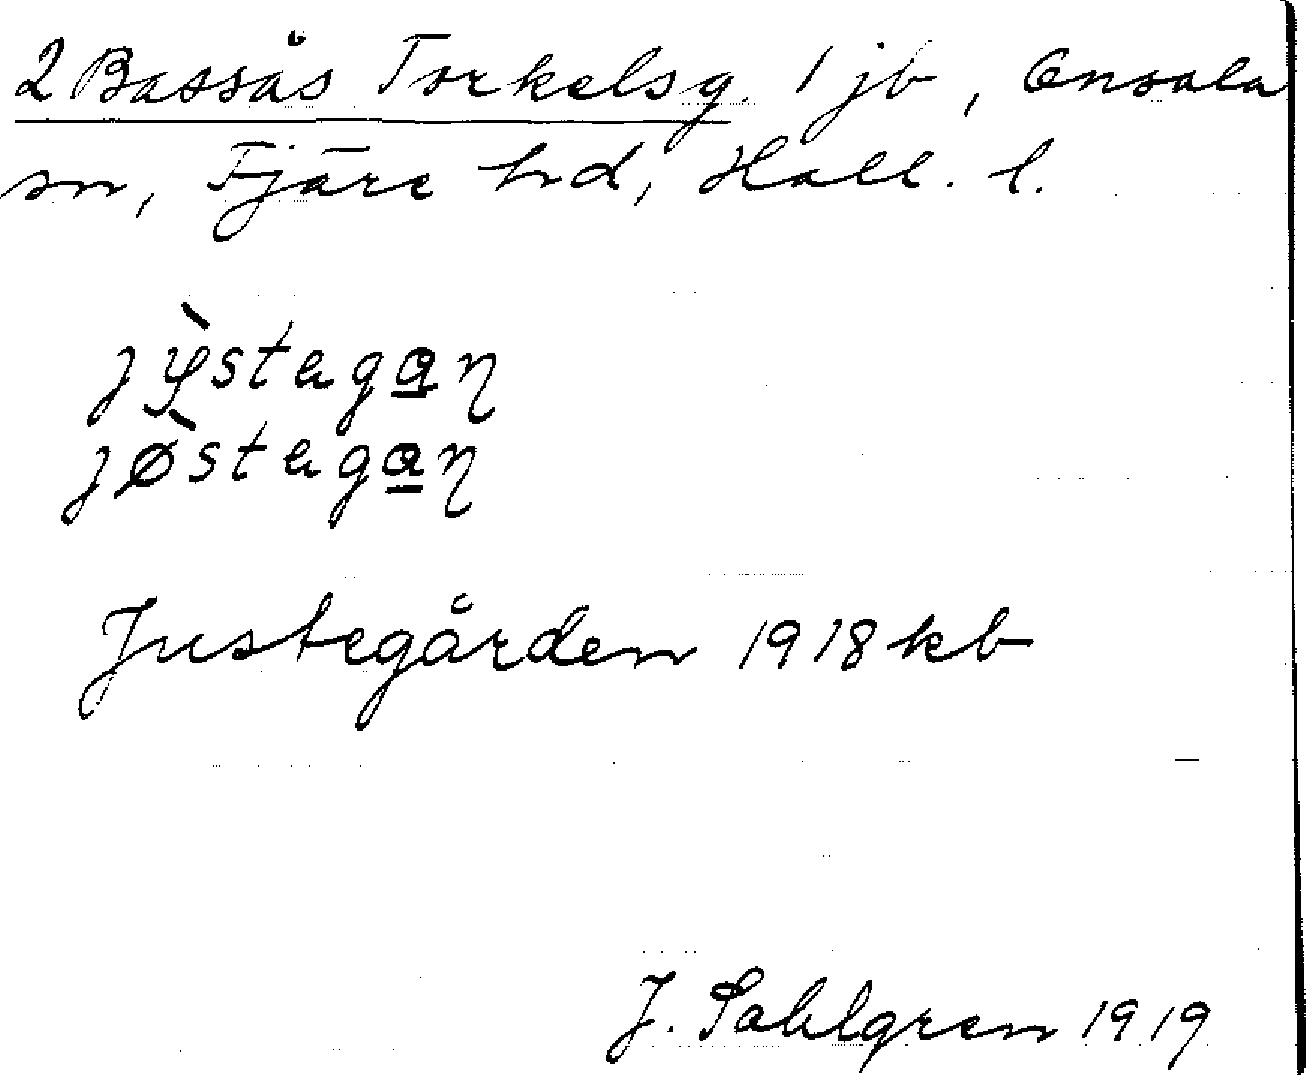 2 Bassås Torkelsg. 1 jb, Onsala
sn, Fjäre hd, Hall. l.
jy̆̀stagan̡
jø̀stagan̡
Justegården 1918 kb
J. Sahlgren 1919